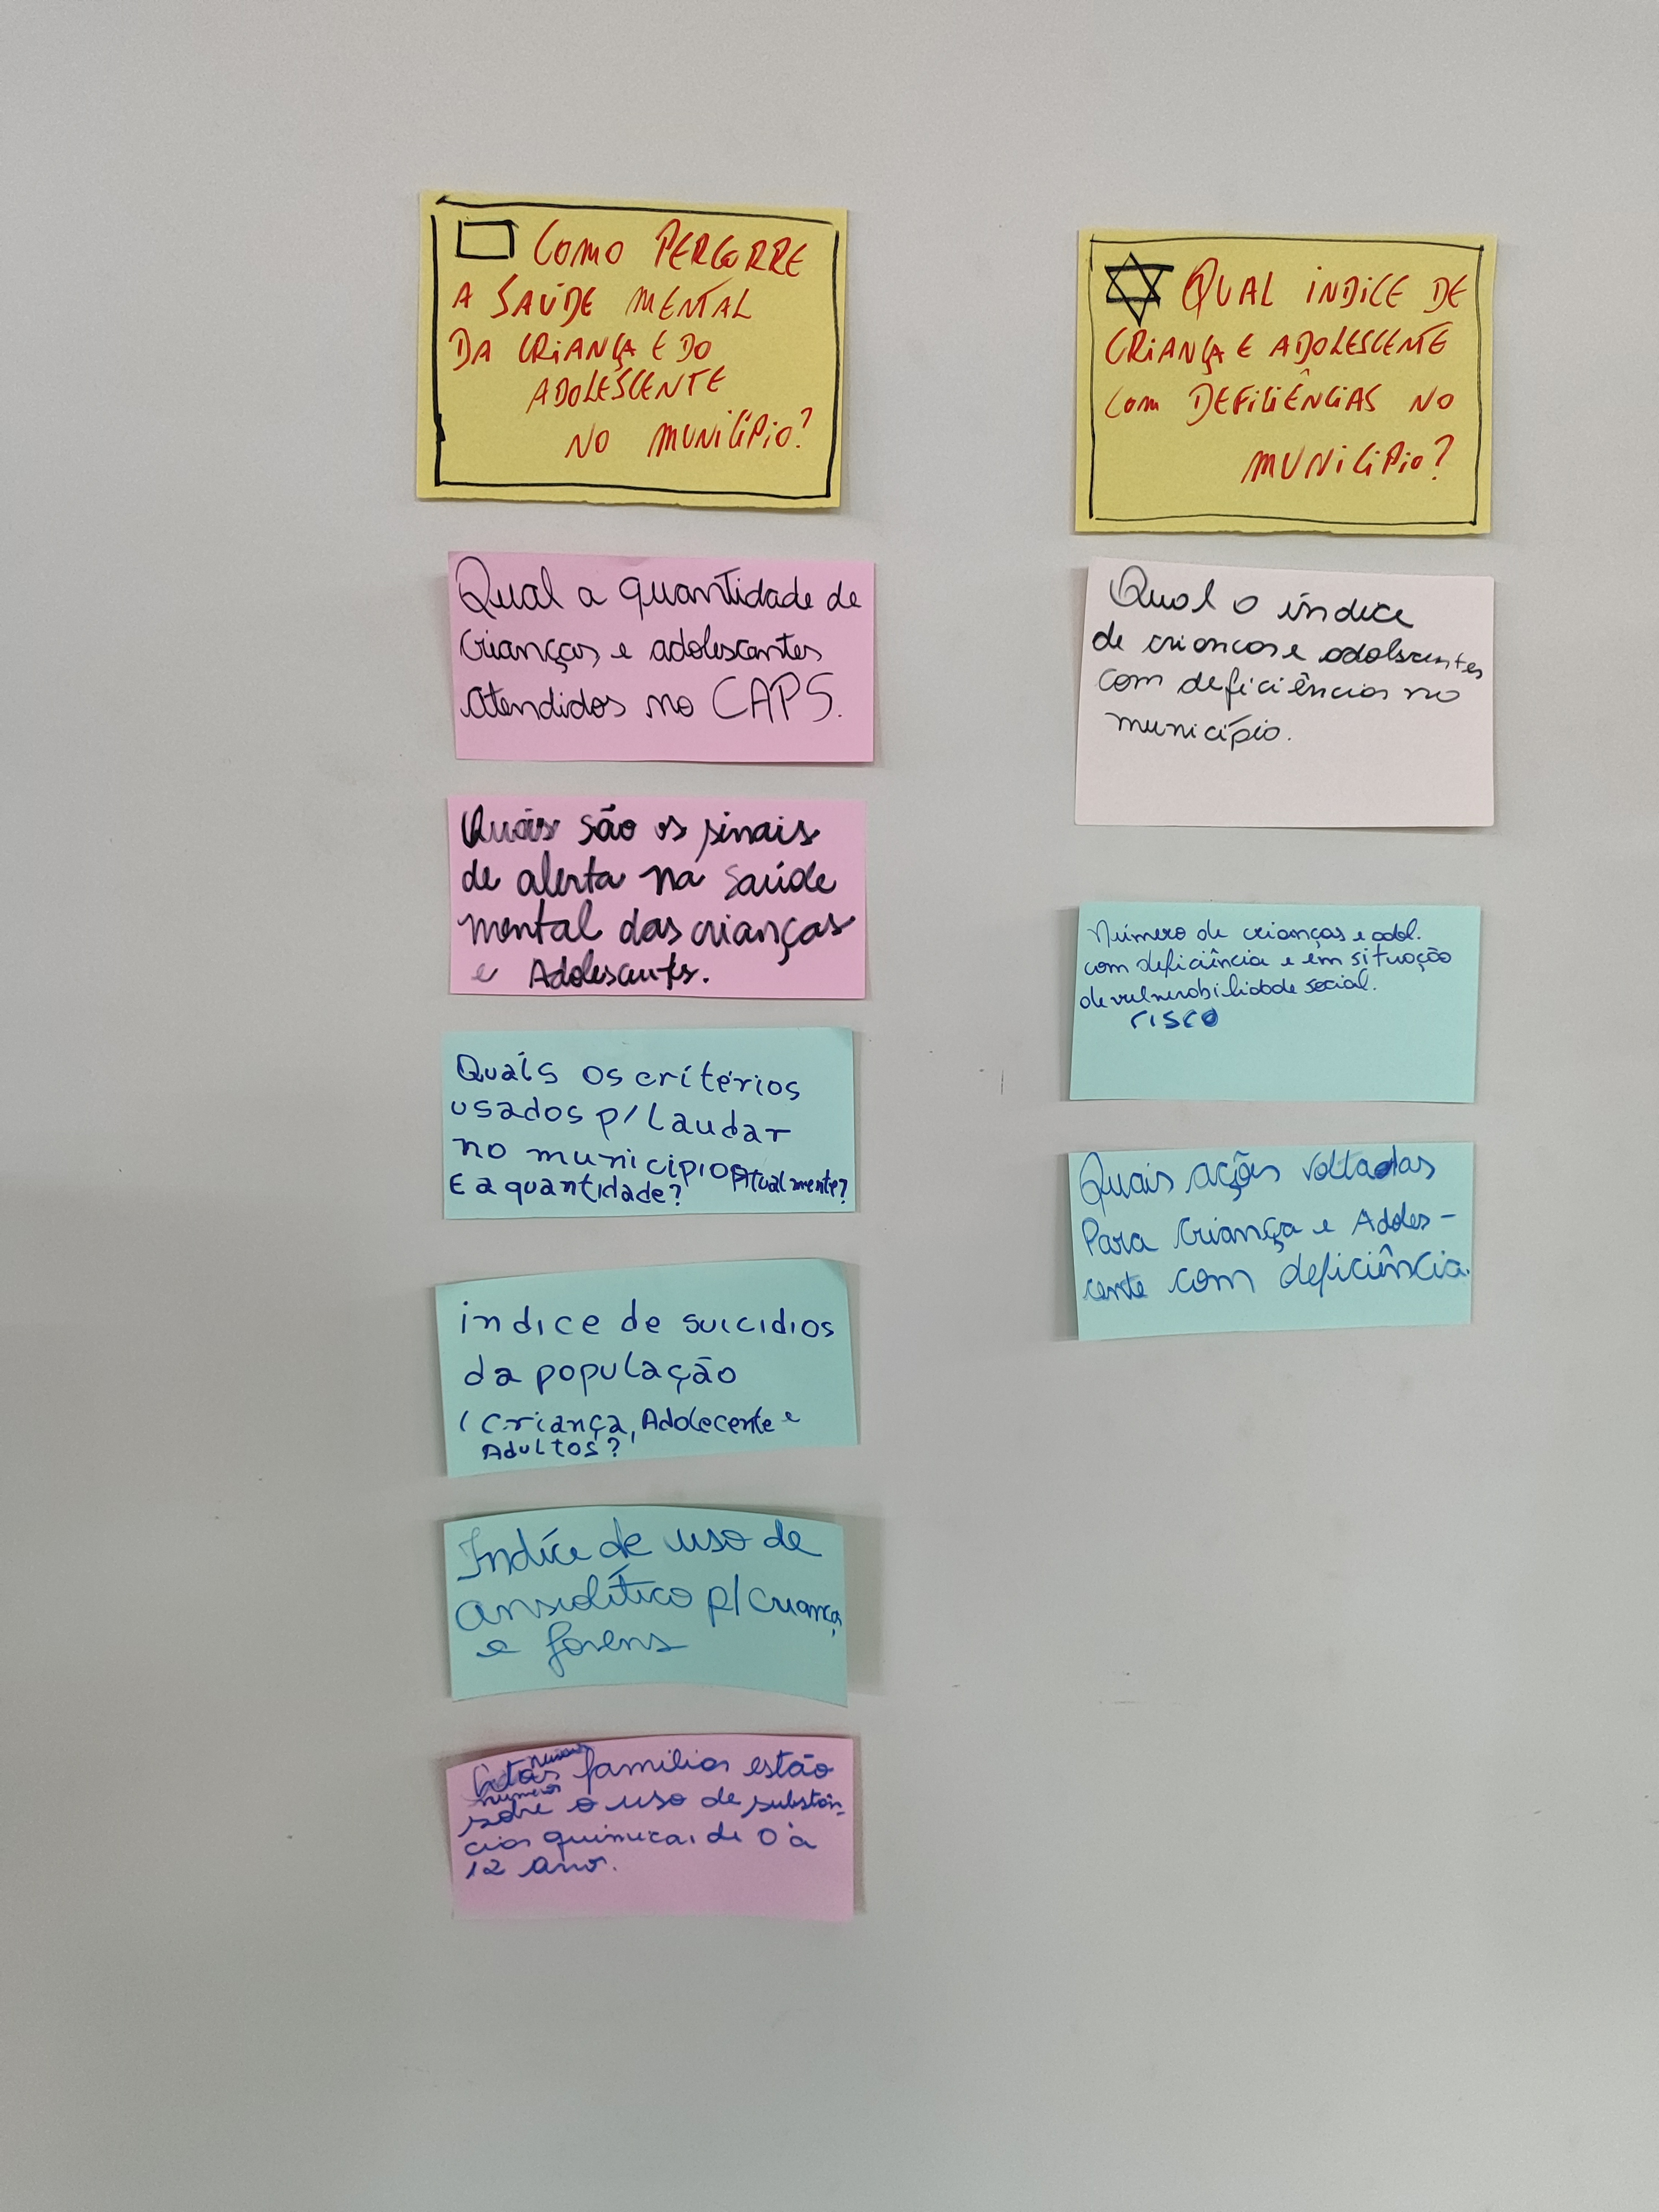 COMO PERCORRE
A SAÚDE MENTAL
DA CRIANÇA E DO
ADOLESCENTE
NO MUNICÍPIO?
Qual a quantidade de
crianças e adolescentes
atendidos no CAPS.
Quais são os sinais
de alerta na saúde
mental das crianças
e Adolescentes.
Quais os critérios
usados p/ Laudar
no municipio Atualmente?
E a quantidade?
indice de suicidios
da população
( Criança, Adolecente e
Adultos?
Indíce de uso de
ansiolítico p/ criança
e jovens
famílias estão
números
sobre o uso de substân-
cias química, de 0 à
12 ano.
QUAL INDICE DE
CRIANÇA E ADOLESCENTE
COM DEFICIÊNCIAS NO
MUNICÍPIO?
Qual o índice
de criancas e adolscentes
com deficiências no
município.
Número de crianças e adol.
com deficiência e em situação
de vulnerabilidade social.
risco
Quais ações voltadas
Para Criança e Adoles-
cente com deficiência.